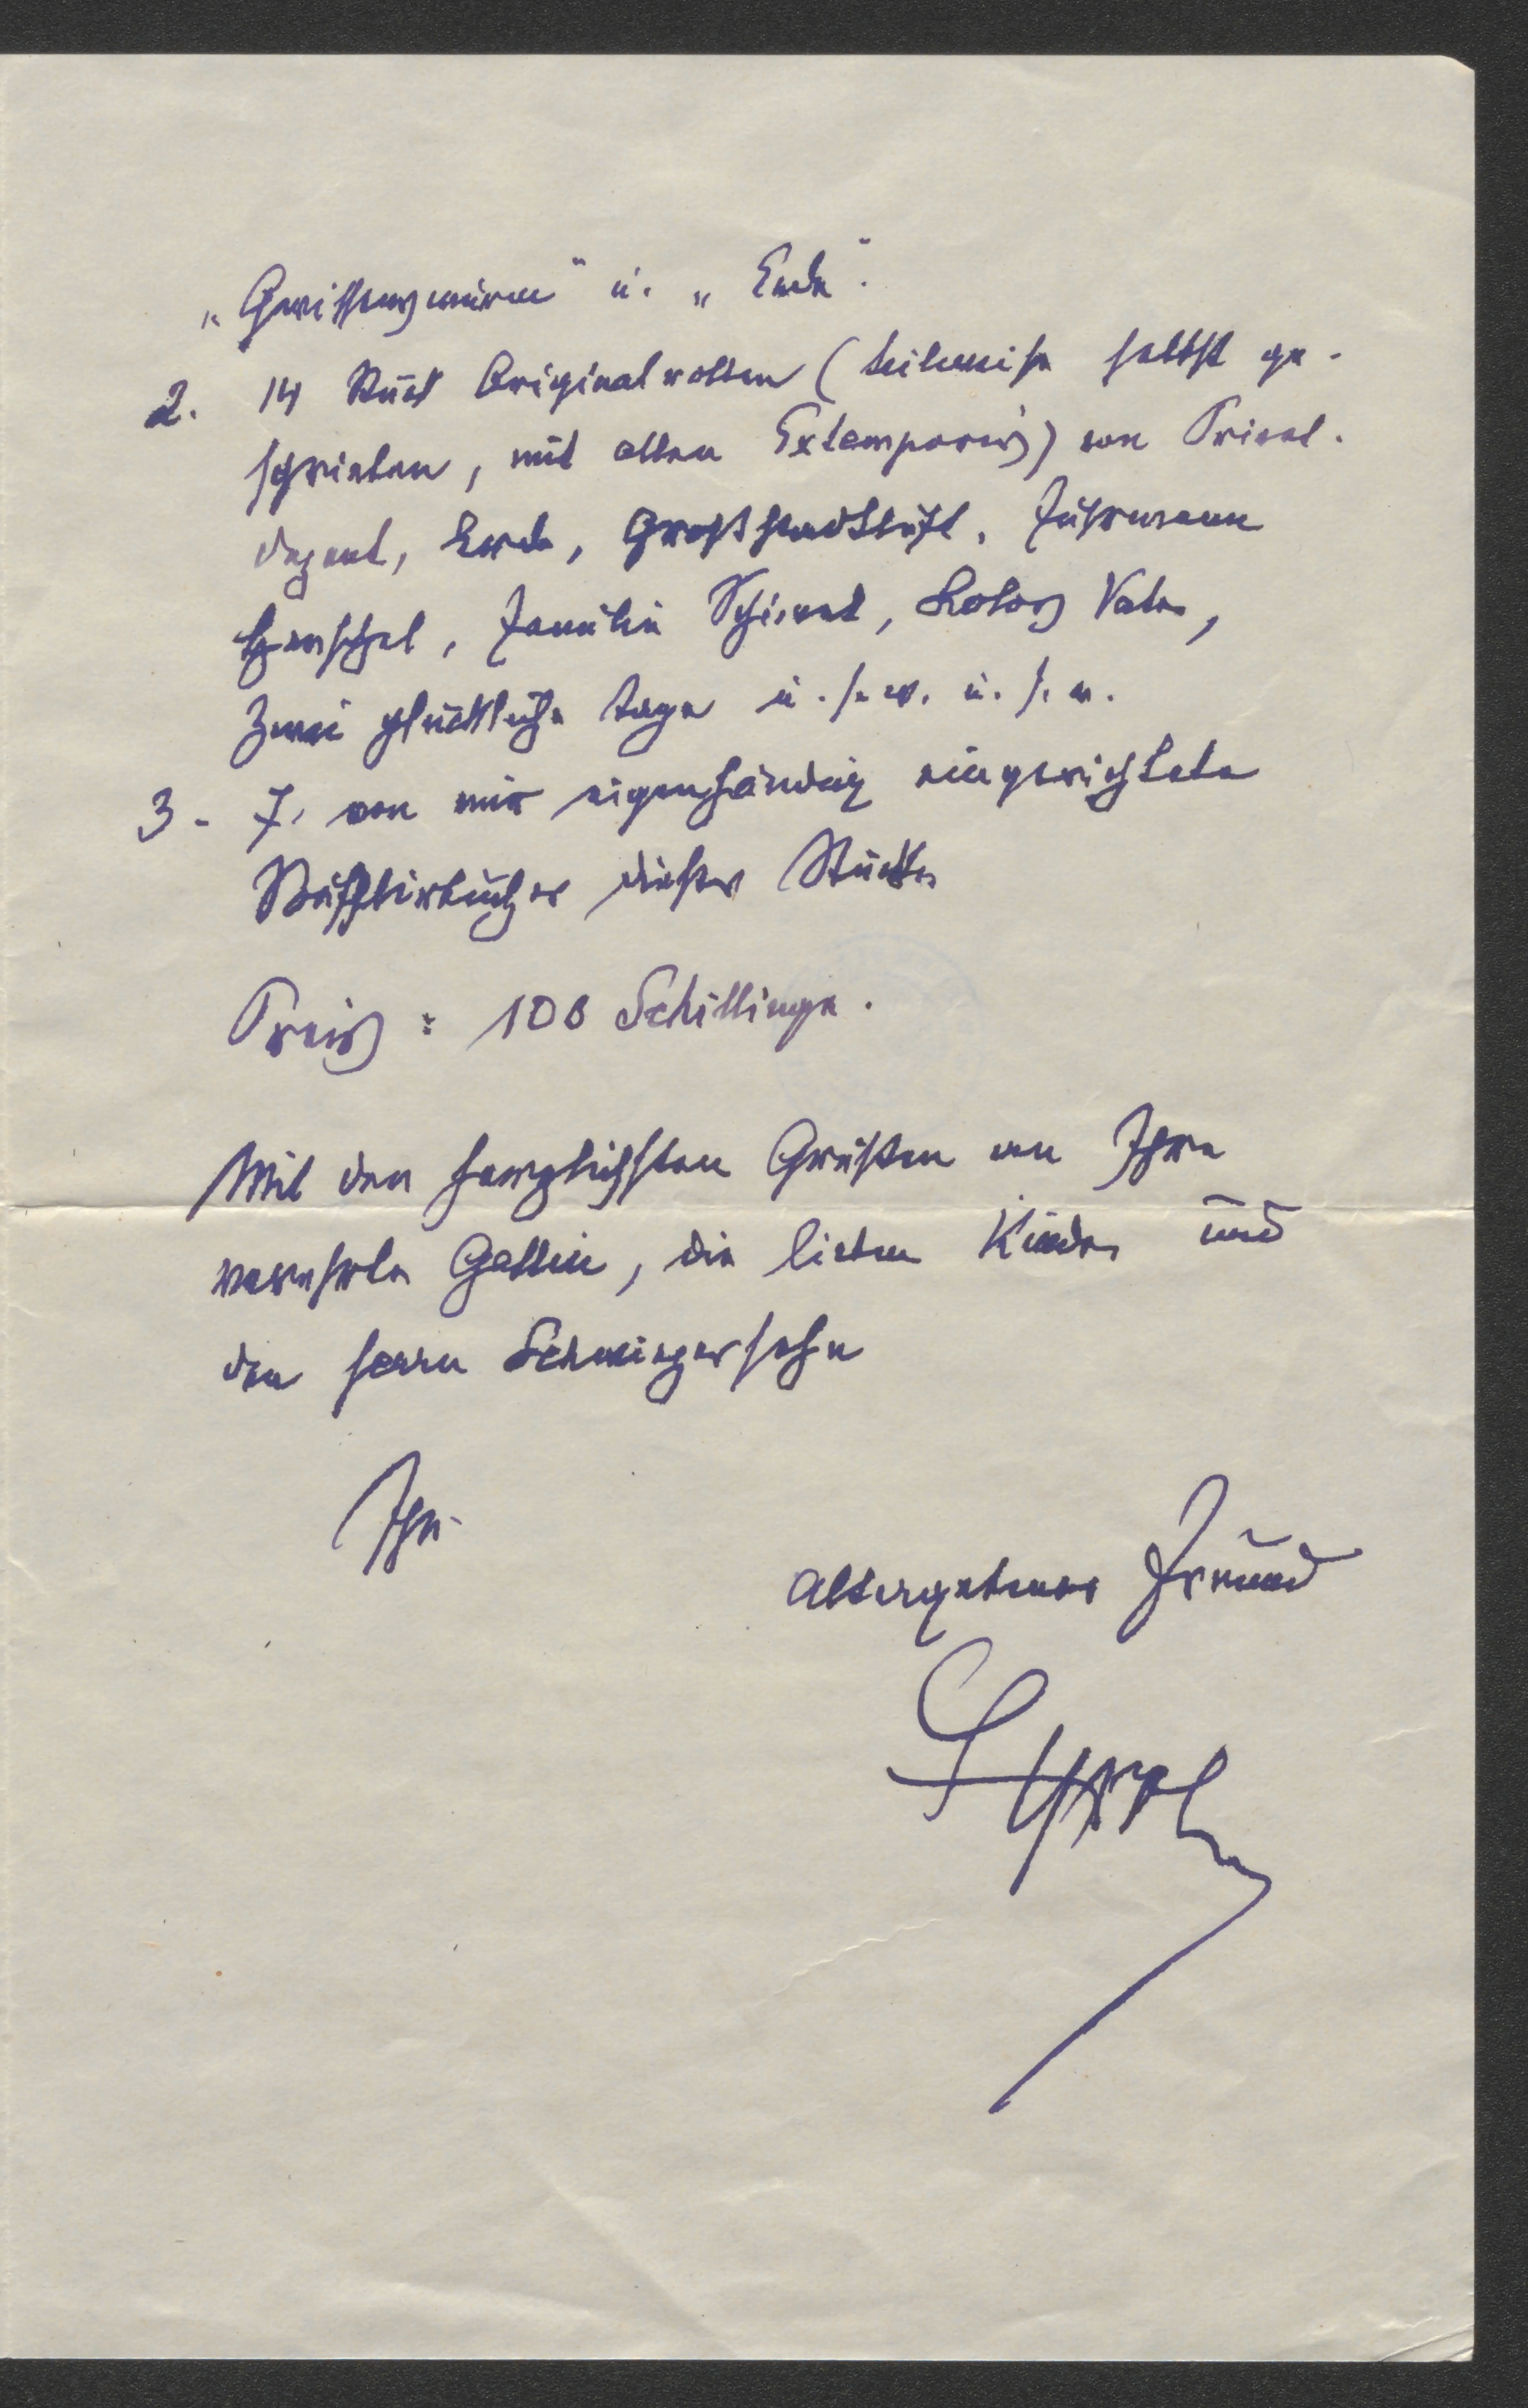 „Gewissenswurm“ u. „Erde“.
2. 14 Stück Originalrollen (teilweise selbst ge-
schrieben, mit allen Extemporeis) von Privat-
dozent, Erde, Großstadtluft, Fuhrmann
Henschel, Familie Schimek, Vater,
Zwei glückliche Tage u. s. w. u. s. w.
3. 7. von mir eigenhändig eingerichtete
Soufflierbücher dieser Stücke
Preis : 100 Schillinge.
Mit den herzlichsten Grüßen an Ihre
verehrte Gattin, die lieben Kinder und
den Herrn Schwiegersohn
Ihr
altergebener Freund